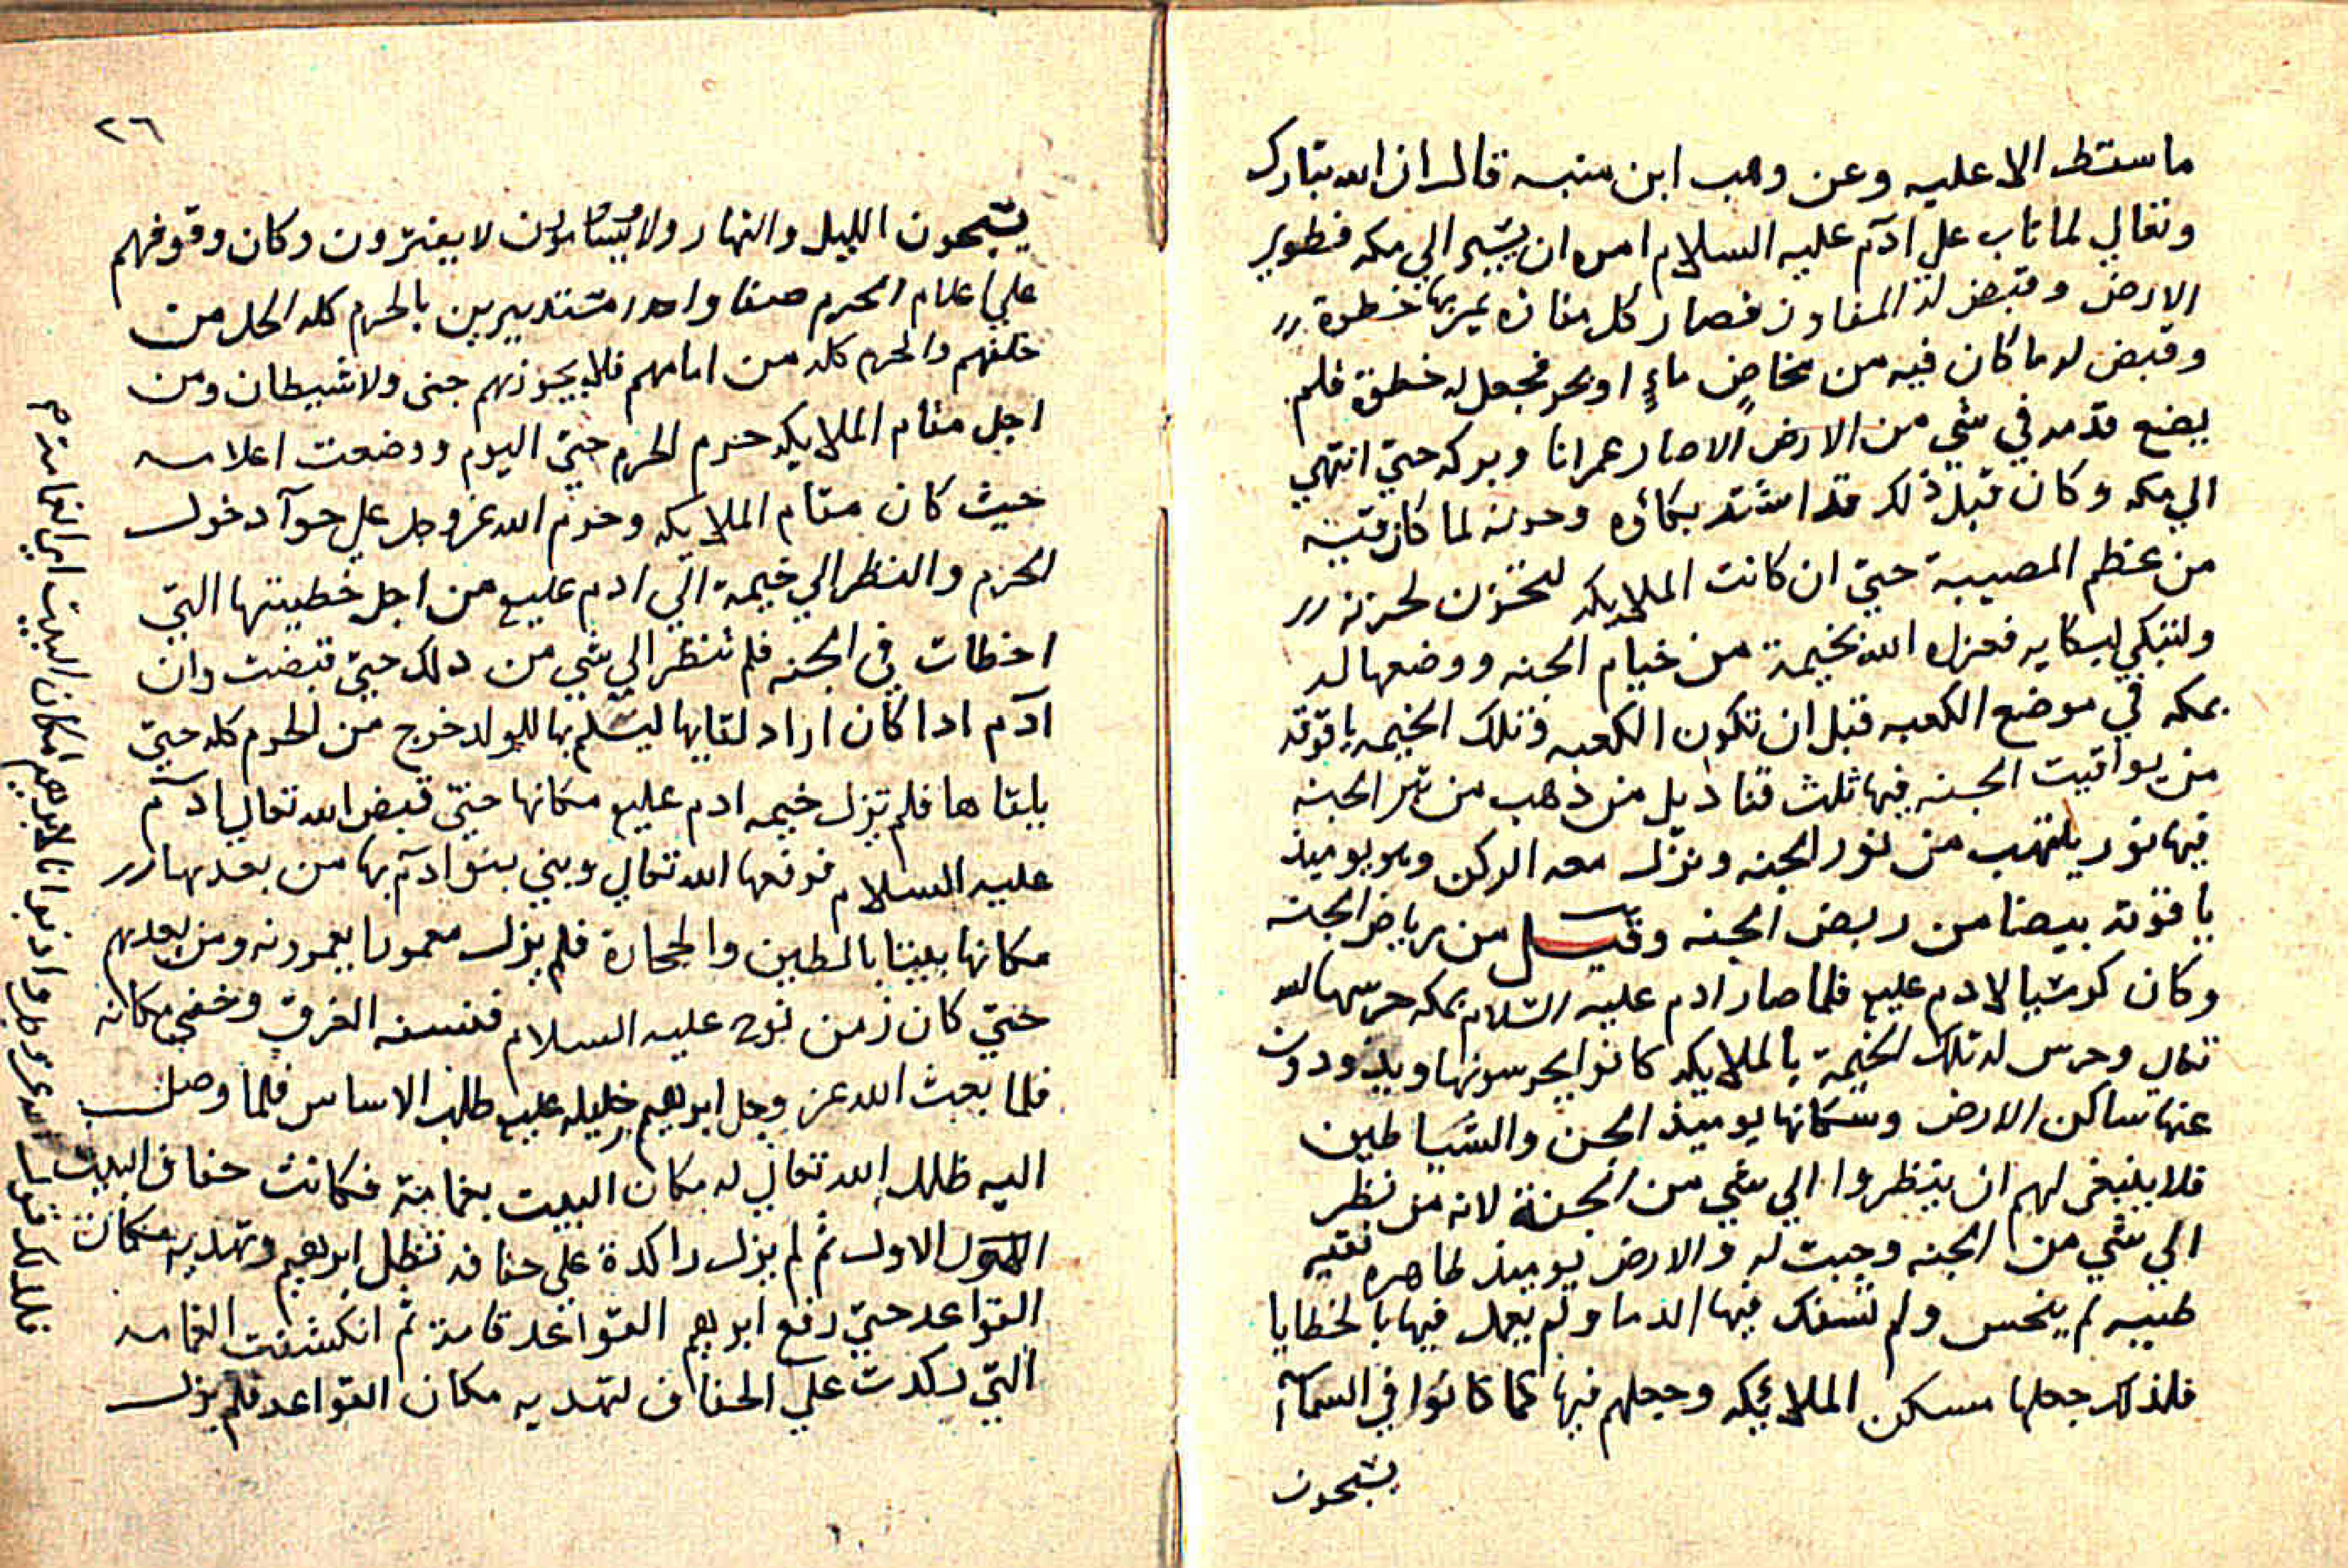 ما سقط الا عليه وعن وهب ابن منبه قال ان الله تبارك
وتعالي لما تاب علي آدم عليه السلام امره ان يسير الي مكه فطوي
الارض وقبض له المفاوز فصار كل مفازه يمر بها خطوة
وقبض له ما كان فيه من مخاض ماءٍ او بحر فجعل له خطوة فلم
يضع قدمه في شي من الارض الا صار عمرانا وبركه حتي انتهي
الي مكه وكان قبل ذلك قد اشتد بكاؤه وحزنه لما كان فيه
من عظم المصيبة حتي ان كانت الملايكه لتحزن لحزنه
ولتبكي لبكايه فعزاه الله بخيمة من خيام الجنه ووضعها له
بمكه في موضع الكعبه قبل ان تكون الكعبه وتلك الخيمه ياقوته
من يواقيت الجنه فيها ثلث قناديل من ذهب من تبر الجنه
فيها نور يلتهب من نور الجنه ونزل معه الركن وهو يوميذ
ياقوته بيضا من ربض الجنه وقيل من رياض الجنه
وكان كرسيا لادم عليه فلما صار ادم عليه السلام بمكه حرسها الله
تعالي وحرس له تلك الخيمة بالملايكه كانوا يحرسونها ويذودون
عنها ساكن الارض وسكانها يوميذ الجن والشياطين
فلا ينبغي لهم ان ينظروا الي شي من الجنة لانه من نظر
الي شي من الجنه وجبت له والارض يوميذ طاهره نقيه
طيبه لم ينجس ولم تسفك فيها الدما ولم يعمل فيها بالخطايا
فلذلك جعلها مسكن الملائكه وجعلهم فيها كما كانوا في السماء
يسبحون
٢٦
يسبحون الليل والنهار ولا يسامون لا يفترون وكان وقوفهم
علي اعلام الحرم صفا واحدا مستديرين بالحرم كله الحل من
خلفهم والحرم كله من امامهم فلا يجوزهم جني ولا شيطان ومن
اجل مقام الملايكه حرم الحرم حتي اليوم ووضعت اعلامه
حيث كان مقام الملايكه وحرم الله عز وجل علي حوآ دخول
الحرم والنظر الي خيمة الي ادم عليه من اجل خطيتها التي
اخطات في الجنه فلم تنظر الي شي من دلك حتي قبضت وان
آدم ادا كان اراد لقايها ليسلم بها للولد خرج من الحرم كله حتي
يلقاها فلم تزل خيمه ادم عليه مكانها حتي قبض الله تعالي ادم
عليه السلام فرفعها الله تعالي وبني بنو ادم بها من بعدها
مكانها بيتا بالطين والحجارة فلم يزل معمورا يعمرونه ومن بعدهم
حتي كان زمن نوح عليه السلام فنسفه الغرق وخفي مكانه
فلما بعث الله عز وجل ابرهيم خليله عليه طلب الاساس فلما وصل
اليه ظلل الله تعالي له مكان البيت بغمامة فكانت حفاف البيت
الاول ثم لم يزل راكدة علي حفافه تظل ابرهيم وتهديه مكان
القواعد حتي رفع ابرهيم القواعد قامة ثم انكشفت الغمامه
التي ركدت علي الحفاف لتهديه مكان القواعد فلم يزل
فلذلك قوله عز وجل واذ بوانا لابرهيم مكان البيت اي الغمامة